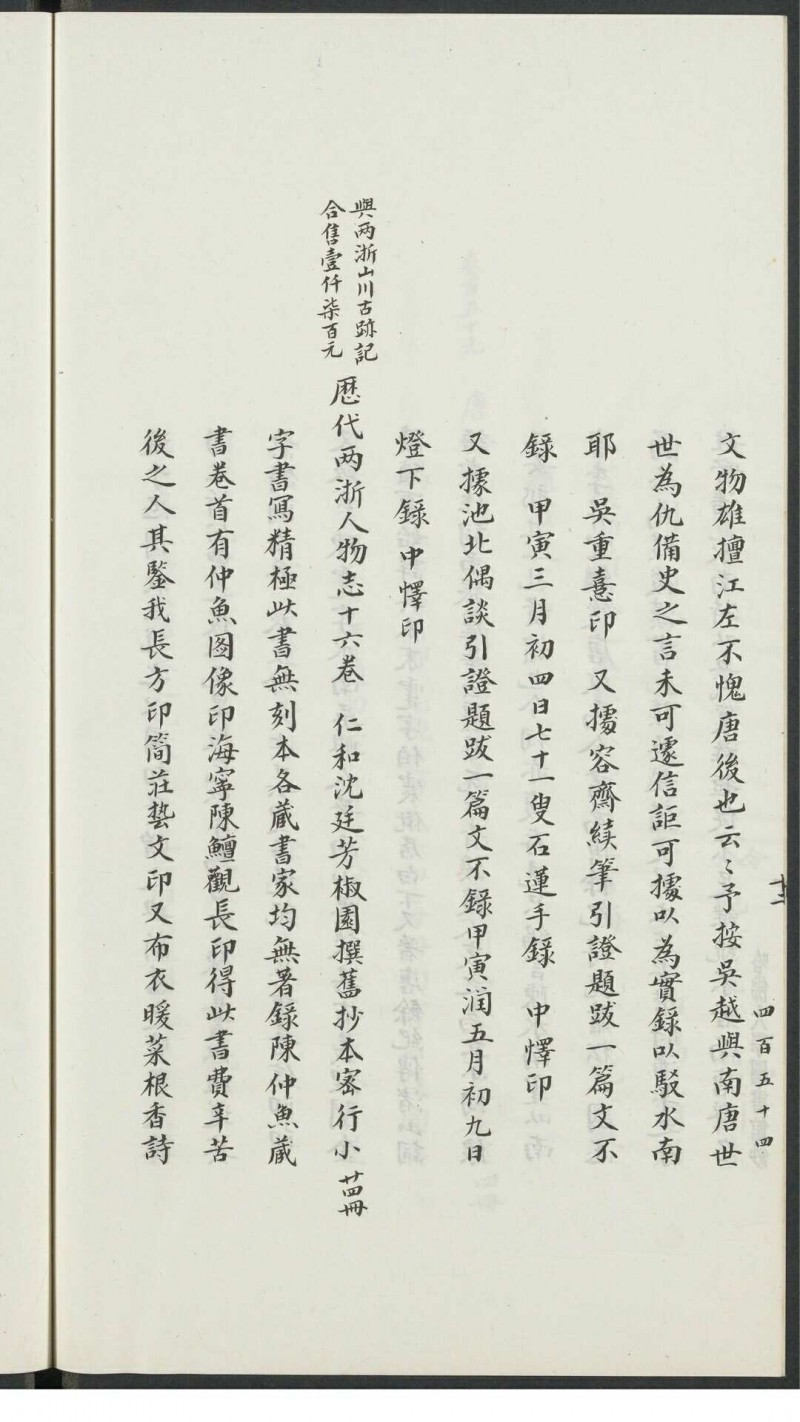 十二
四百五十四
文物雄擅江左不愧唐後也云〻予按吳越與南唐世
世為仇備史之言未可遽信詎可據以為實錄以駁水南
耶　吳重憙印　又據容齋續筆引證題跋一篇文不
錄　甲寅三月初四日七十一叟石蓮手錄　中懌印
又據池北偶談引證題跋一篇文不錄甲寅润五月初九日
燈下錄　中懌印
與两浙山川古跡記
合售壹仟柒百元
歴代两浙人物志十六卷　仁和沈廷芳椒園撰舊抄本密行小　廿四冊
字書寫精極此書無刻本各藏書家均無著錄陳仲魚藏
書卷首有仲魚图像印海寧陳鱣觀長印得此書費辛苦
後之人其鑒我長方印简莊藝文印又布衣暖菜根香詩